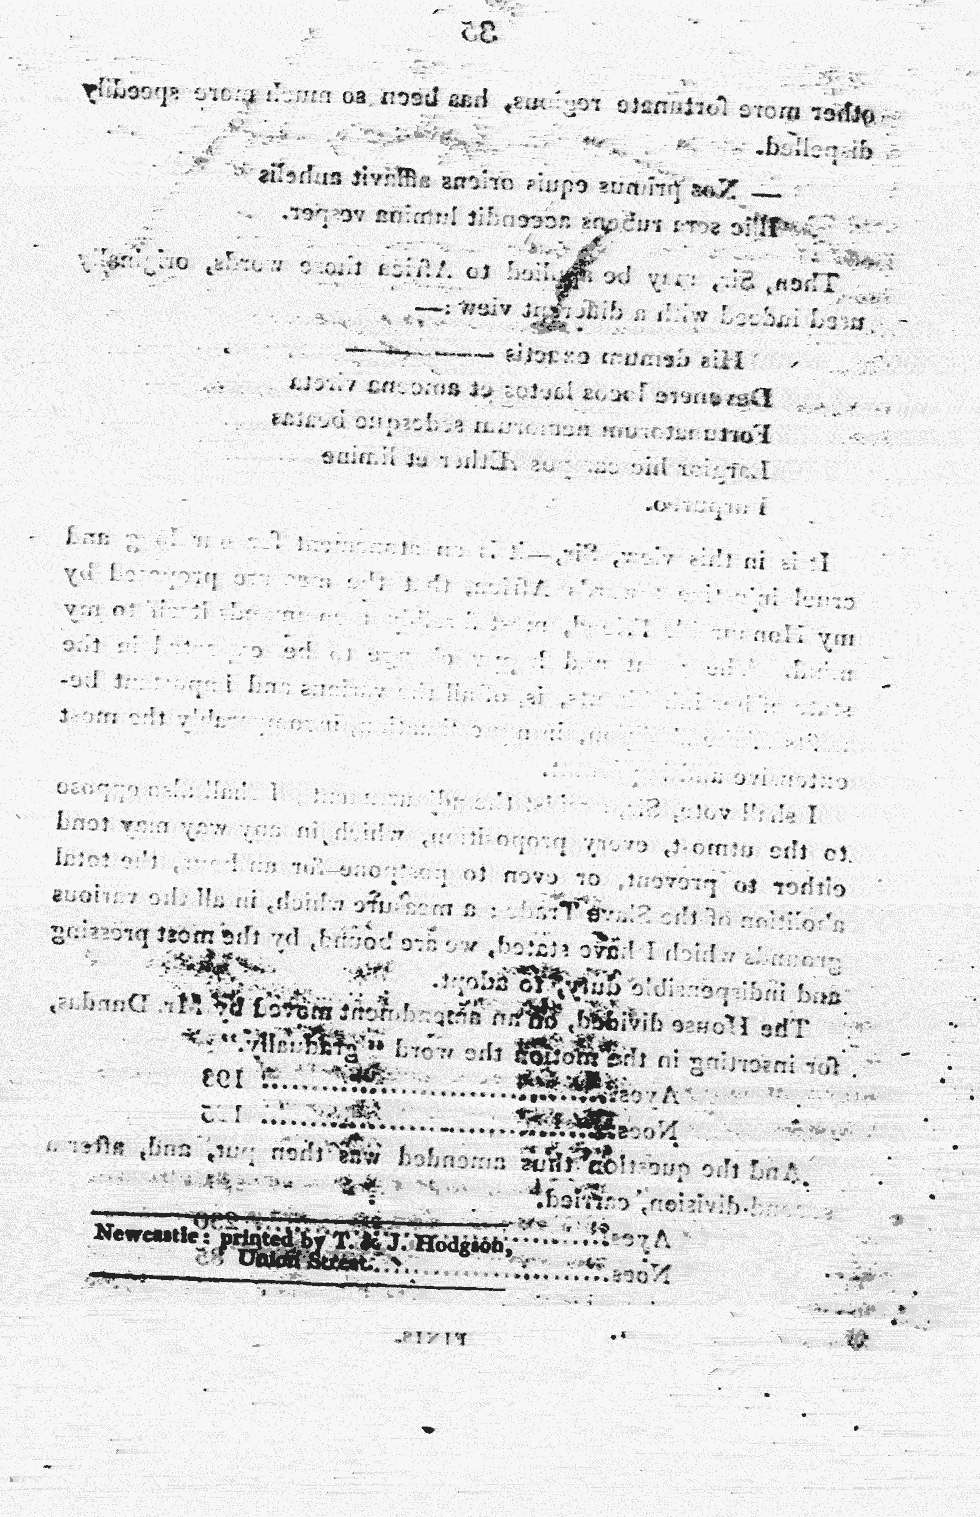 35
other more fortunate regions, has been so much more speedily
dispelled.
— Nos primus equis oriens afflavit anhelis
Illic sera rubens accendit lumina vesper.
Then, Sir, may be applied to Africa those words, originally
used indeed with a different view :—
His demum exactis ———
Devenere locos laetos et amoena vireta
Fortunatorum nemorum sedesque beatas
Largior hic campos Æther et limine
Purpureo.
It is in this view, Sir,—it is an atonement for our long and
cruel injustice towards Africa, that the measure proposed by
my Honourable Friend, most forcibly recommends itself to my
mind. The great and happy change to be expected in the
state of her inhabitants, is, of all the various and important be-
the most
extensive and
I shall vote, Sir, against the adjournment; I shall also oppose
to the utmost, every proposition, which in any way may tend
either to prevent, or even to postpone for an hour, the total
abolition of the Slave Trade : a measure which, in all the various
grounds which I have stated, we are bound, by the most pressing
and indispensible duty, to adopt.
The House divided, on an amendment moved by Mr. Dundas,
for inserting in the motion the word “gradually.”
Ayes.......... 193
Noes.......... 125
And the question thus amended was then put, and, after a
second division, carried.
Ayes.......... 230
Noes.......... 85
Newcastle: printed by T. & J. Hodgson,
Union Street.
FINIS.